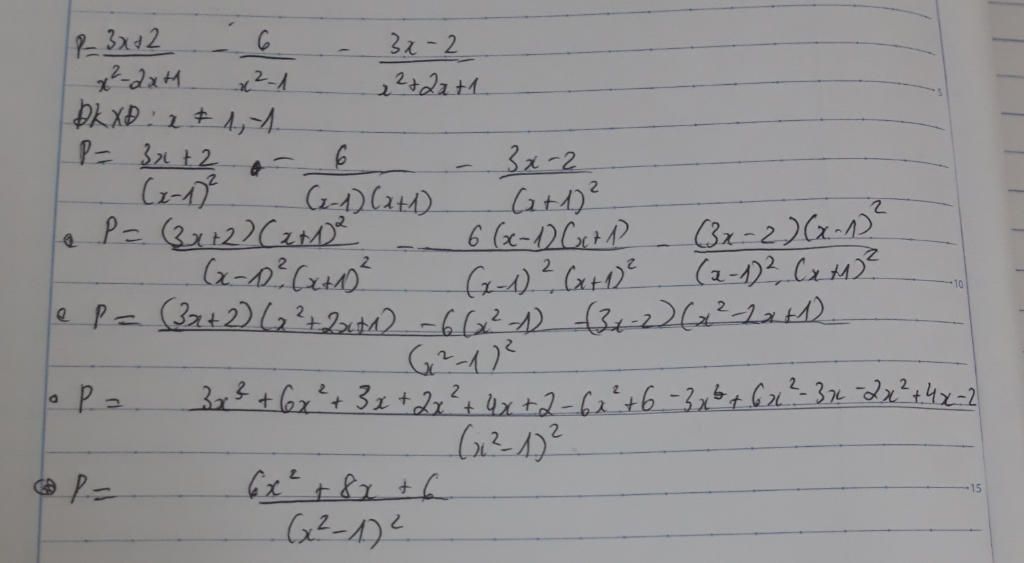 P = \frac{3x+2}{x^2-2x+1} - \frac{6}{x^2-1} - \frac{3x-2}{x^2+2x+1}
ĐKXĐ: x ≠ 1, -1
P = \frac{3x+2}{(x-1)^2} - \frac{6}{(x-1)(x+1)} - \frac{3x-2}{(x+1)^2}
P = \frac{(3x+2)(x+1)^2}{(x-1)^2.(x+1)^2} - \frac{6(x-1)(x+1)}{(x-1)^2.(x+1)^2} - \frac{(3x-2)(x-1)^2}{(x-1)^2.(x+1)^2}
P = \frac{(3x+2)(x^2+2x+1) - 6(x^2-1) - (3x-2)(x^2-2x+1)}{(x^2-1)^2}
P = \frac{3x^3+6x^2+3x+2x^2+4x+2-6x^2+6-3x^3+6x^2-3x-2x^2+4x-2}{(x^2-1)^2}
P = \frac{6x^2+8x+6}{(x^2-1)^2}
5
10
15